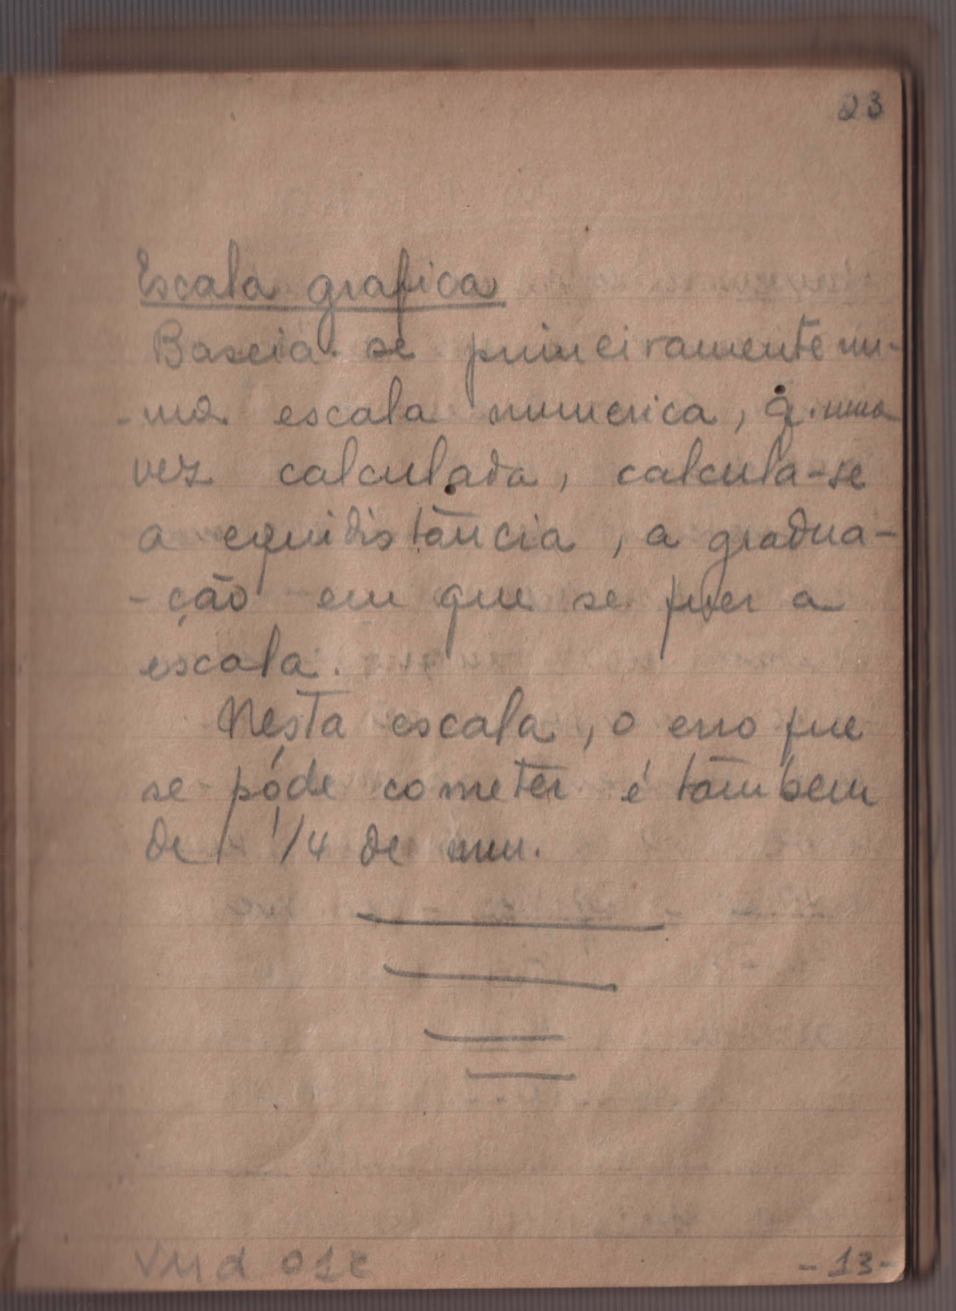 23
Escala grafica
Baseia-se primeiramente nu-
-ma escala numerica, q. uma
vez calculada, calcula-se
a equidistância, a gradua-
-ção em que se quer a
escala.
Nesta escala, o erro que
se póde cometer é tambem
de 1/4 de mm.
-13-